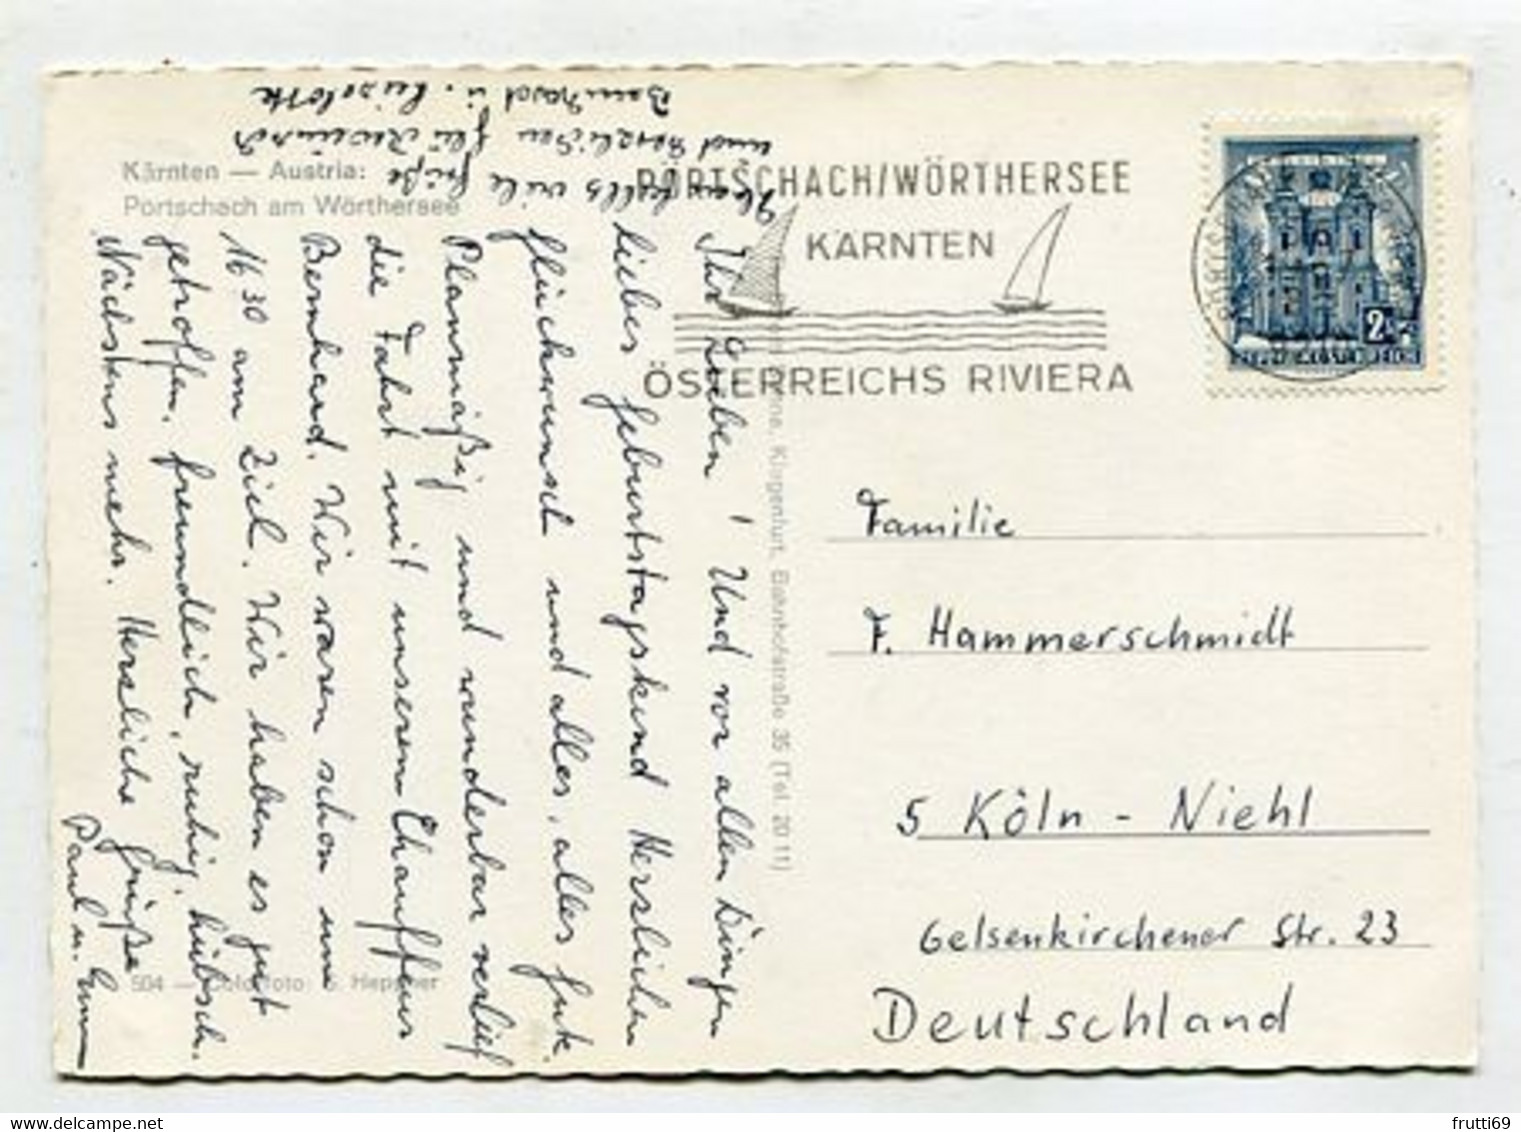 Kärnten — Austria:
Portschach am Wörthersee
PÖRTSCHACH/WÖRTHERSEE
KÄRNTEN
ÖSTERREICHS RIVIERA
2
Ihr Lieben! Und vor allen Dingen
liebes Geburtstagskind Herzlichen
Glückwunsch und alles, alles Gute.
Planmäßig und wunderbar verlief
die Fahrt mit unserem Chauffeur
Bernhard. Wir waren schon um
16 30 am Ziel. Wir haben es gut
getroffen, freundlich, ruhig, hübsch.
Nächstens mehr. Herzliche Grüße
Paul u.
viele Grüße
und herzlichen Glückwunsch
Bernhard u. Liselotte
Klagenfurt, Bahnhofstraße 35 (Tel. 20 11)
504 — Colorfoto: S.
Familie
F. Hammerschmidt
5 Köln - Niehl
Gelsenkirchener Str. 23
Deutschland
frutti69